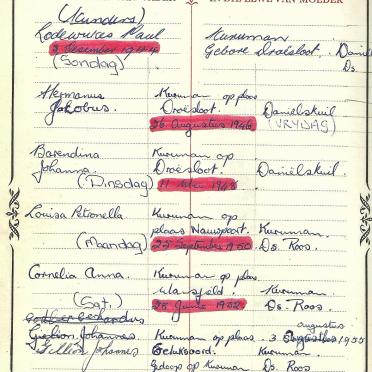 IN DIE EEUE VAN MOEDER
(Kinders)
Lodewikus Paul Kuruman
3 Desember 1944 Gebore Droësloot. Daniel
(Sondag) Ds.
Hermanus Kuruman op plaas
Jakobus. Droësloot. Daniëlskuil
26 Augustus 1946 (VRYDAG)
Barendina Kuruman op
Johanna. Droësloot. Daniëlskuil.
(Dinsdag) 11 Mei 1948
Louisa Petronella Kuruman op
plaas Nauwpoort. Kuruman.
(Maandag) 25 September 1950 Ds. Roos.
Cornelia Anna. Kuruman op plaas
Mansfeld. Kuruman.
(Sat.) 28 Junie 1952 Ds. Roos.
augustus
Johannes Kuruman op plaas 3 1955
Johannes Geluksoord. Kuruman.
Gedoop op Kuruman Ds. Roos